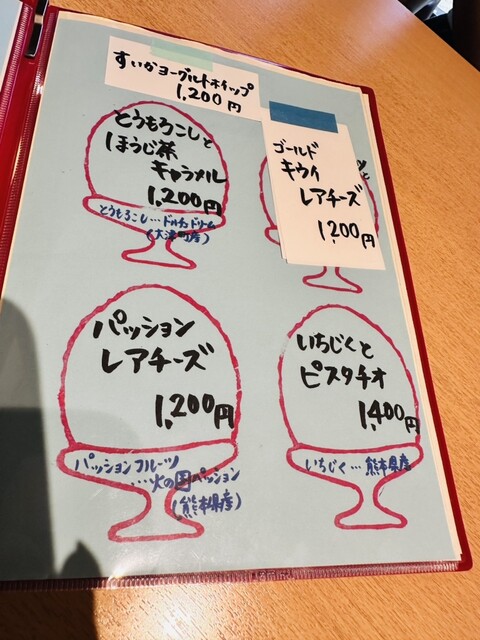 すいかヨーグルトホイップ
1,200円
とうもろこしと
ほうじ茶
キャラメル
1,200円
とうもろこし…ドルチェドリーム
(大津町産)
ゴールド
キウイ
レアチーズ
1,200円
パッション
レアチーズ
1,200円
パッションフルーツ
…火の国パッション
(熊本県産)
いちじくと
ピスタチオ
1,400円
いちじく…熊本県産